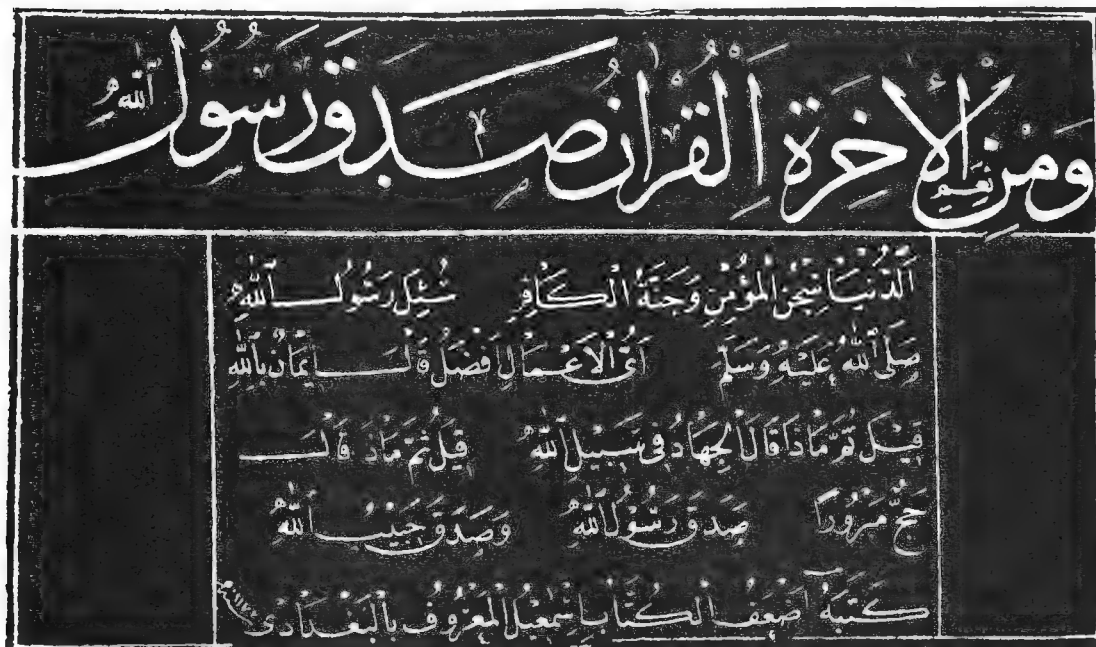 وَمِنْ نَعِيمِ الْأٰخِرَةِ الْقُرْاٰنُ صَدَقَ رَسُولُ اللّٰهِ
اَلدُّنْيَا سِجْنُ الْمُؤْمِنِ وَجَنَّةُ الْكَافِرِ سُئِلَ رَسُولُ اللّٰهِ
صَلَّى اللّٰهُ عَلَيْهِ وَسَلَّمَ اَىُّ الْاَعْمَالِ اَفْضَلُ قَالَ اِيمَانٌ بِاللّٰهِ
قِيلَ ثُمَّ مَاذَا قَالَ الْجِهَادُ فِى سَبِيلِ اللّٰهِ قِيلَ ثُمَّ مَاذَا قَالَ
حَجٌّ مَبْرُورًا صَدَقَ رَسُولُ اللّٰهِ وَصَدَقَ حَبِيبُ اللّٰهِ
كَتَبَهُ اَضْعَفُ الْكُتَّابِ اِسْمٰعِيلُ الْمَعْرُوفُ بِالْبَغْدَادِى